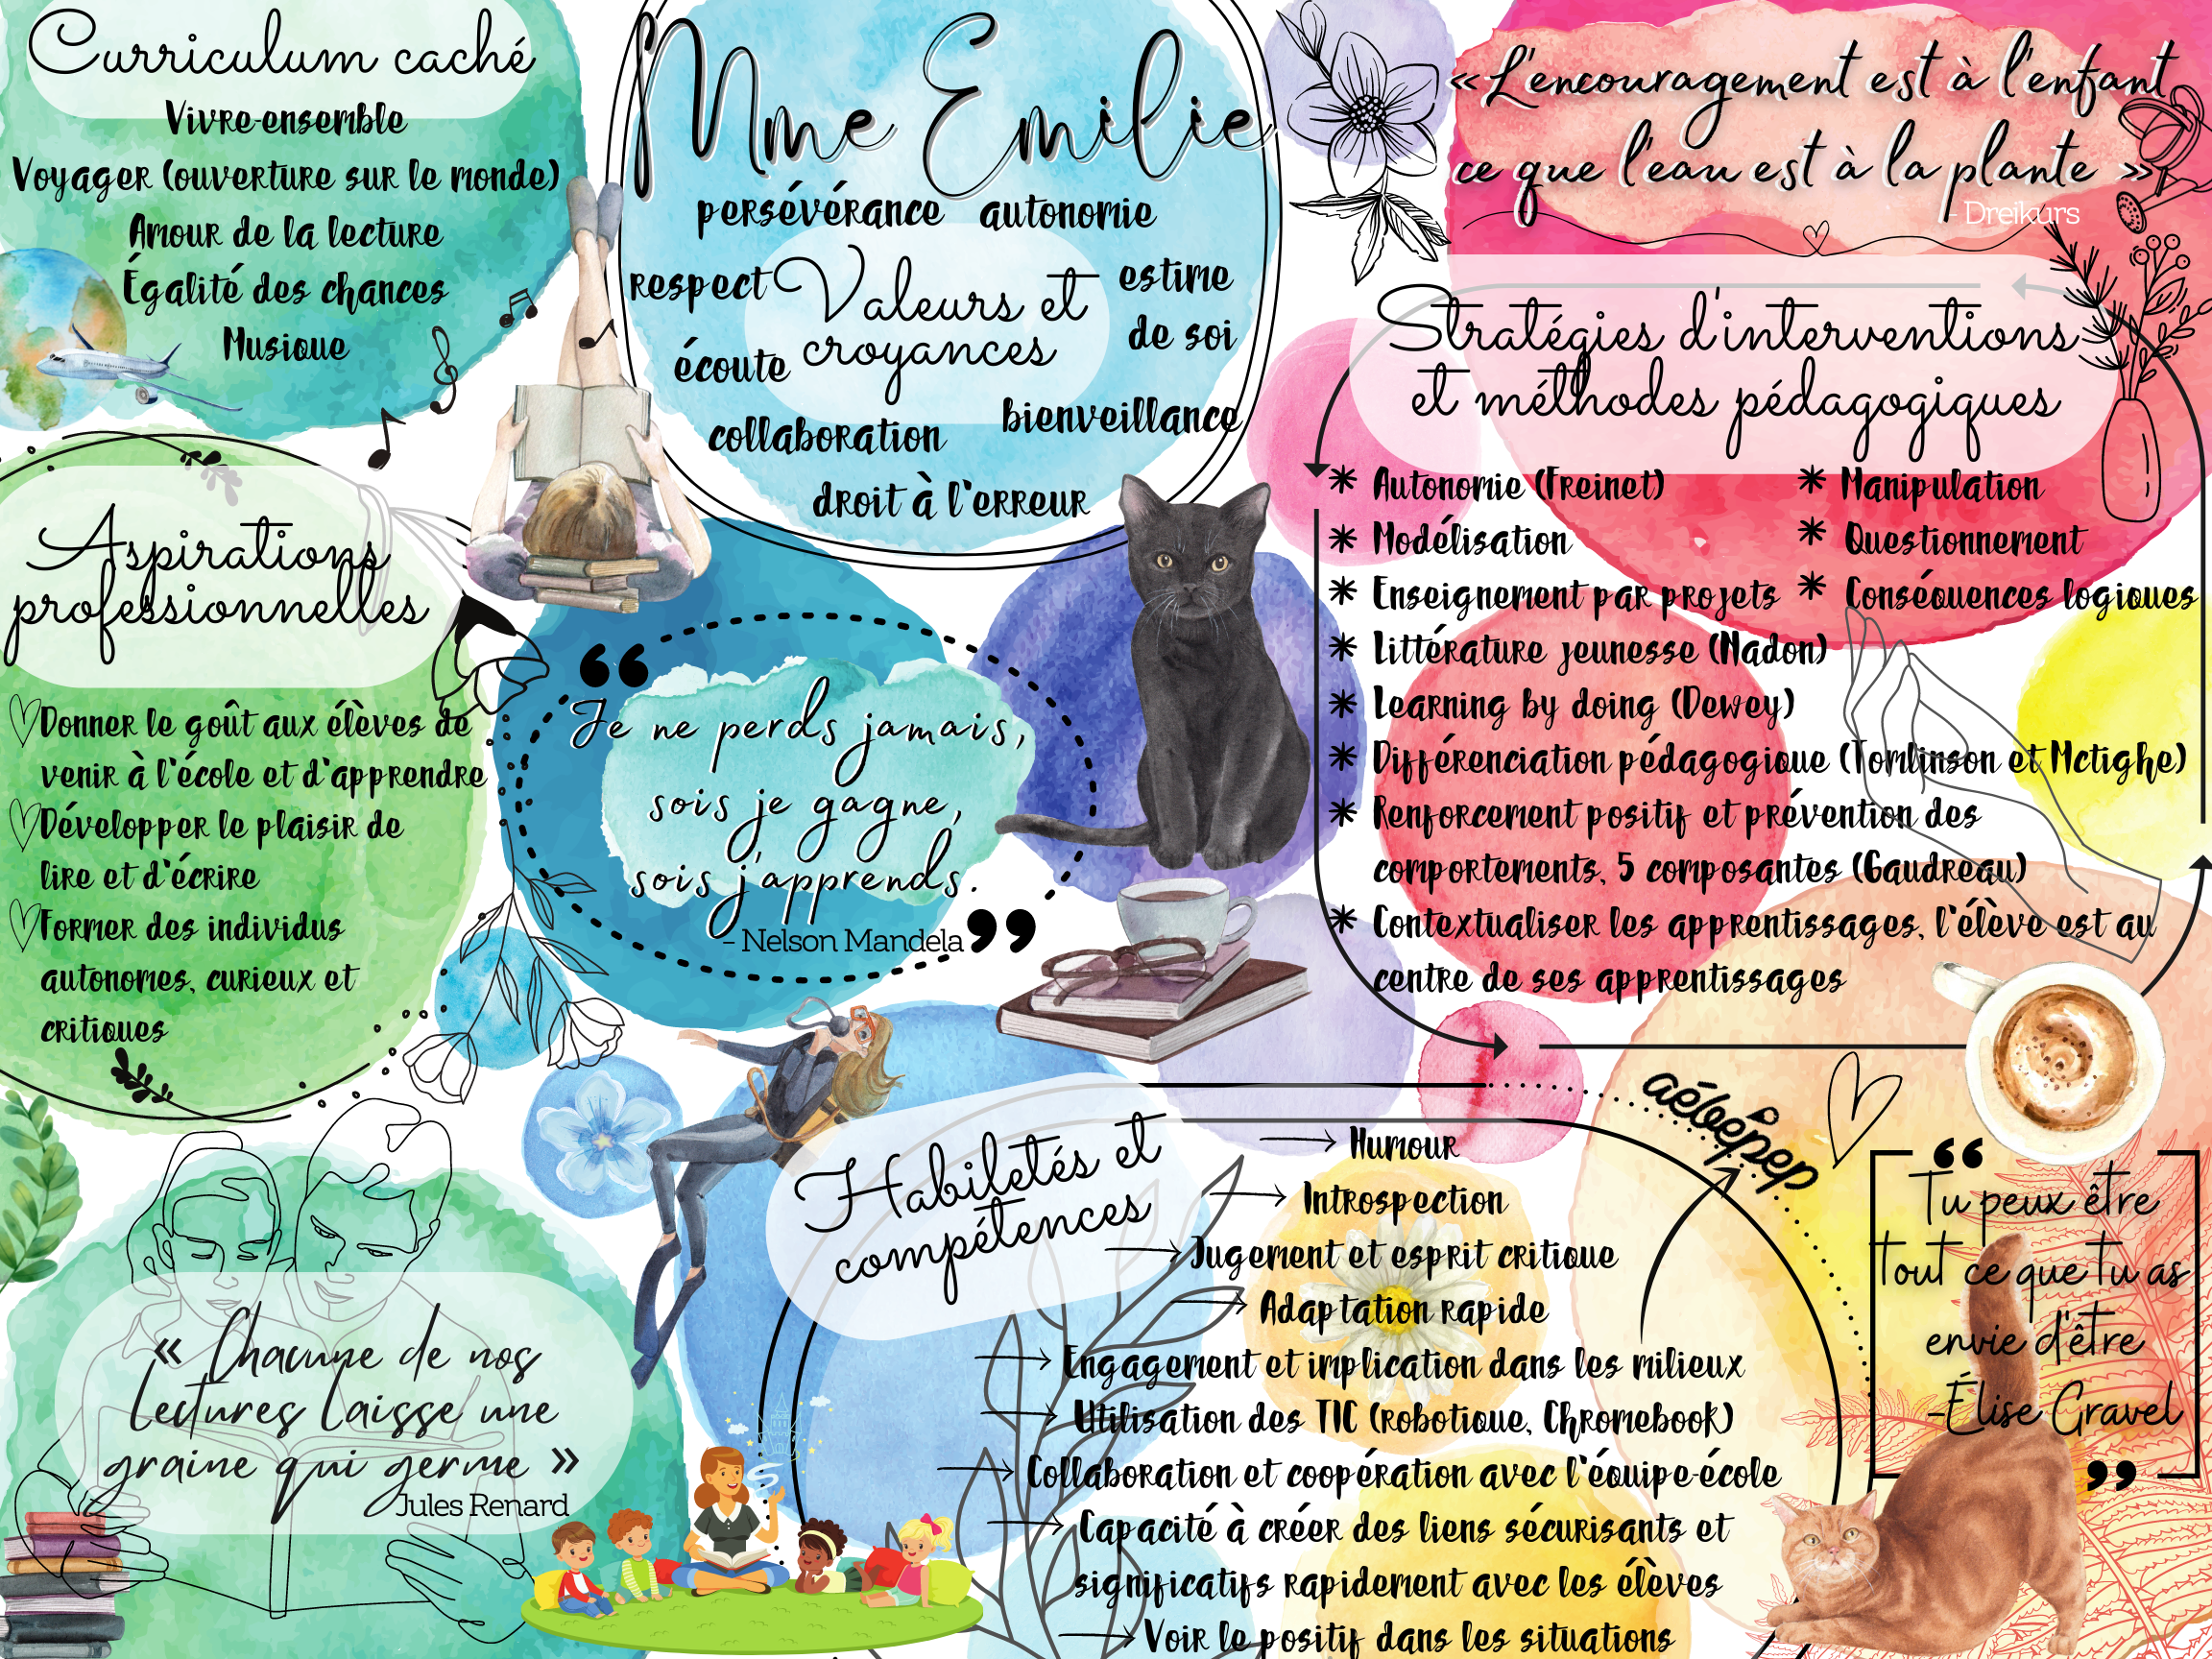 Curriculum caché
Vivre-ensemble
Voyager (ouverture sur le monde)
Amour de la lecture
Égalité des chances
Musique
Mme Emilie
persévérance autonomie
respect
estime
de soi
Valeurs et
croyances
écoute
collaboration
bienveillance
droit à l'erreur
«L'encouragement est à l'enfant
ce que l'eau est à la plante »
- Dreikurs
Stratégies d'interventions
et méthodes pédagogiques
* Autonomie (Freinet)
* Modélisation
* Enseignement par projets
* Littérature jeunesse (Nadon)
* Learning by doing (Dewey)
* Différenciation pédagogique (Tomlinson et Mctighe)
* Renforcement positif et prévention des
comportements, 5 composantes (Gaudreau)
* Contextualiser les apprentissages, l'élève est au
centre de ses apprentissages
* Manipulation
* Questionnement
* Conséquences logiques
Aspirations
professionnelles
Donner le goût aux élèves de
venir à l'école et d'apprendre
Développer le plaisir de
lire et d'écrire
Former des individus
autonomes, curieux et
critiques
“
Je ne perds jamais,
sois je gagne,
sois j'apprends.
- Nelson Mandela
”
Habiletés et
compétences
Humour
Introspection
Jugement et esprit critique
Adaptation rapide
Engagement et implication dans les milieux
Utilisation des TIC (robotique, Chromebook)
Collaboration et coopération avec l'équipe-école
Capacité à créer des liens sécurisants et
significatifs rapidement avec les élèves
Voir le positif dans les situations
aébépep
“
Tu peux être
tout ce que tu as
envie d'être
-Élise Gravel
”
« Chacune de nos
Lectures Laisse une
graine qui germe »
Jules Renard